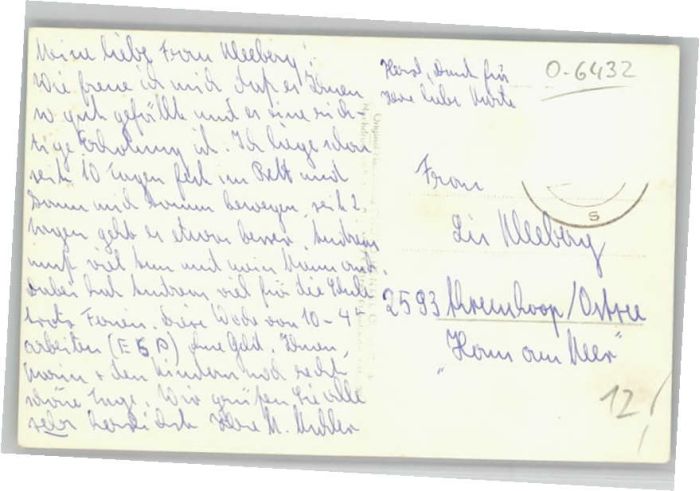 Meine liebe Frau Kleeberg!
Wie freue ich mich daß es Ihnen
so gut gefällt und es eine rich-
tige Erholung ist. Ich liege schon
seit 10 Tagen fest im Bett und
kann mich kaum bewegen, seit 2
Tagen geht es etwas besser. Andreas
muß viel tun und mein Mann auch.
Dabei hat Andreas viel für die Schule
trotz Ferien. Diese Woche von 10-4
arbeiten (ESP) ohne Geld. Ihnen,
Karin + den Kindern noch recht
schöne Tage. Wir grüßen Sie alle
sehr herzlichst Ihre M. Müller
Herzl. Dank für
Ihre liebe Karte
0-6432
Frau
Kleeberg
2593 Ahrenshoop/Ostsee
"Haus am Meer"
12,